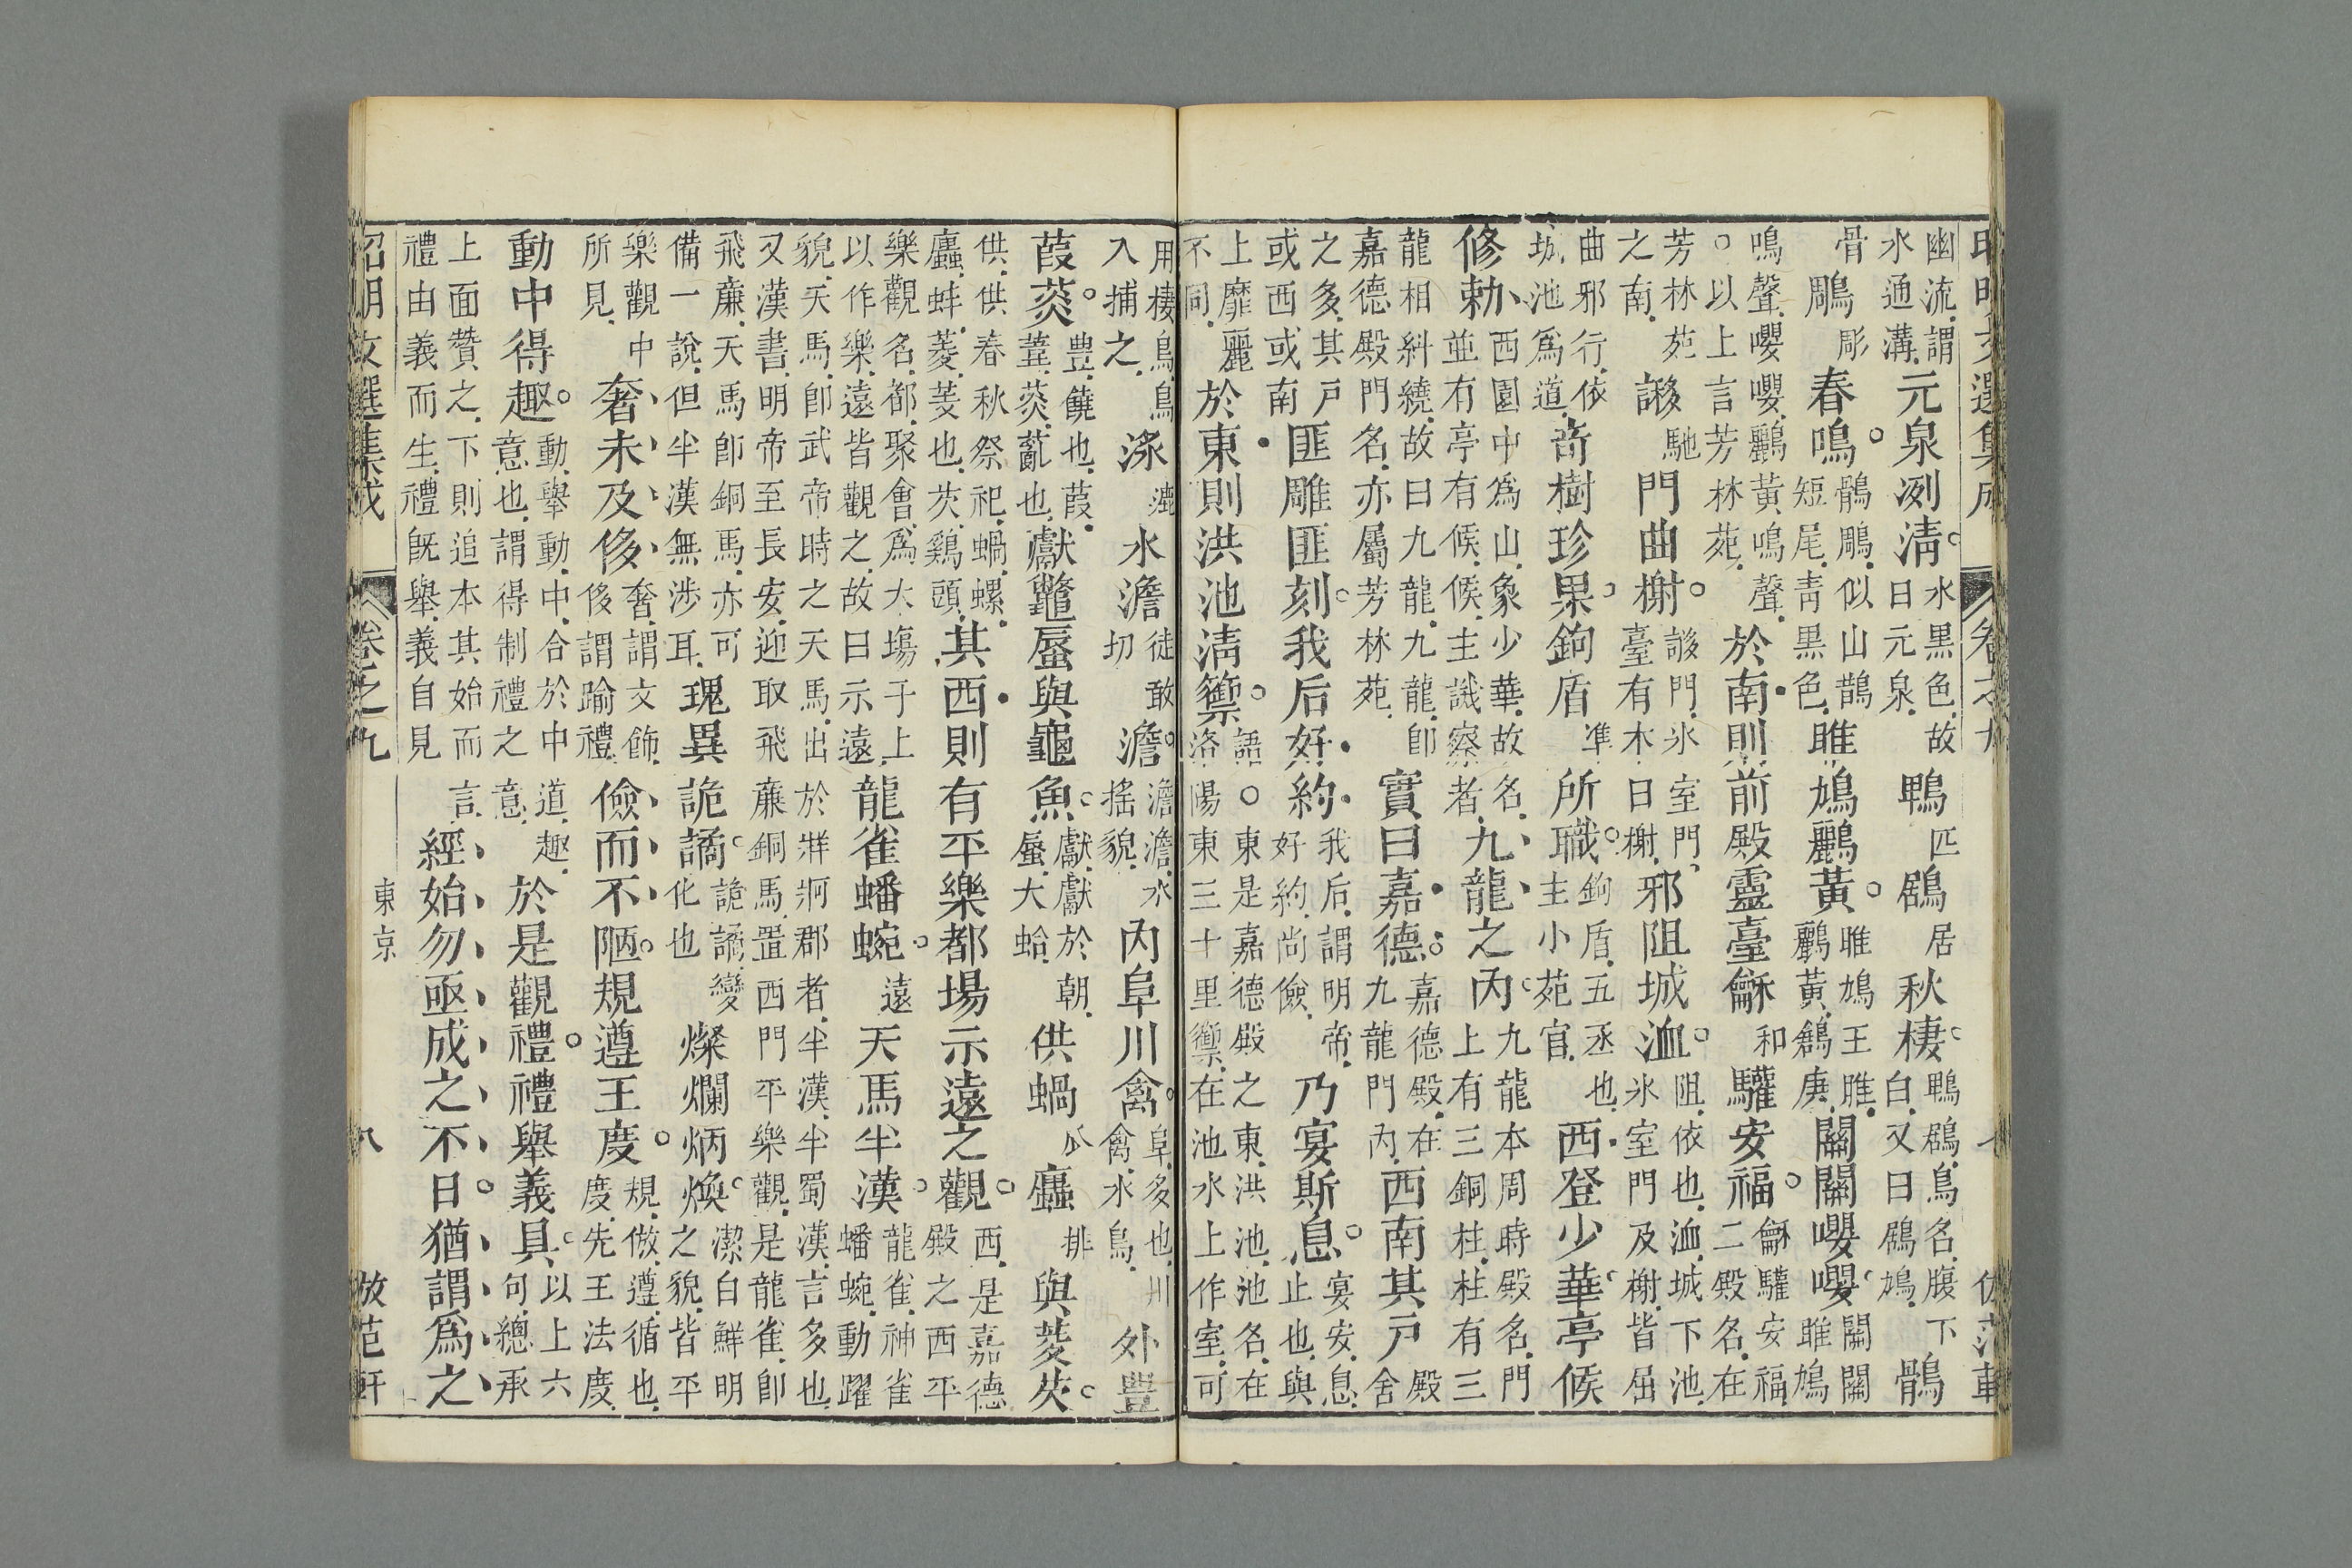 昭明文選集成 卷之九 七 倣范軒
幽流謂水通溝元泉洌清。水黑色故曰元泉鵯匹鶋居秋棲。鵯鶋鳥名腹下白又曰鶋鳩鶻
骨鵰彫春鳴。鶻鵰似山鵲短尾青黑色雎鳩鸝黃。雎鳩王雎鸝黃鶬庚關關嚶嚶。關關雎鳩
鳴聲嚶嚶鸝黃鳴聲○以上言芳林苑於南則前殿靈臺龢和驩安福。龢驩安福二殿名在
芳林苑之南謻馳門曲榭。謻門氷室門臺有木曰榭邪阻城洫。阻依也洫城下池氷室門及榭皆屈
曲邪行依城池爲道奇樹珍果鉤盾凖所職。鉤盾五丞也主小苑官西登少華。亭候
修勅西園中爲山象少華故名並有亭有候候主譏察者九龍之內。九龍本周時殿名門上有三銅柱柱有三
龍相糾繞故曰九龍九龍即嘉德殿門名亦屬芳林苑實曰嘉德。嘉德殿在九龍門內西南其戸殿舍
之多其戸或西或南匪雕匪刻。我后好約我后謂明帝好約尚儉乃宴斯息。宴安息止也與
上靡麗不同於東則洪池清籞。語○東是嘉德殿之東洪池池名在洛陽東三十里籞在池水上作室可
用棲鳥鳥入捕之淥漉水澹徒敢切澹。澹澹水搖貌內阜川禽。阜多也川禽水鳥外豐
葭菼。豐饒也葭葦菼薍也獻鼈蜃與龜魚。獻獻於朝蜃大蛤供蝸瓜蠯排與菱芡。
供供春秋祭祀蝸螺蠯蚌菱芰也芡鷄頭其西則有平樂都場示遠之觀。西是嘉德殿之西平
樂觀名都聚會爲大塲于上以作樂遠皆觀之故曰示遠龍雀蟠蜿。遠天馬半漢。龍雀神雀蟠蜿動躍
貌天馬即武帝時之天馬出於牂牁郡者半漢半蜀漢言多也又漢書明帝至長安迎取飛亷銅馬置西門平樂觀是龍雀即
飛亷天馬即銅馬亦可備一說但半漢無涉耳瑰異詭譎。詭譎變化也燦爛炳煥。潔白鮮明之貌皆平
樂觀中所見奢未及侈奢謂文飾侈謂踰禮儉而不陋。規遵王度。規倣遵循也度先王法度
動中得趣。動舉動中合於中道趣意也謂得制禮之意於是觀禮。禮舉義具。以上六句總承
上面贊之下則追本其始而言禮由義而生禮旣舉義自見經始勿亟成之不日。猶謂爲之
昭明文選集成 卷之九 東京 八 倣范軒